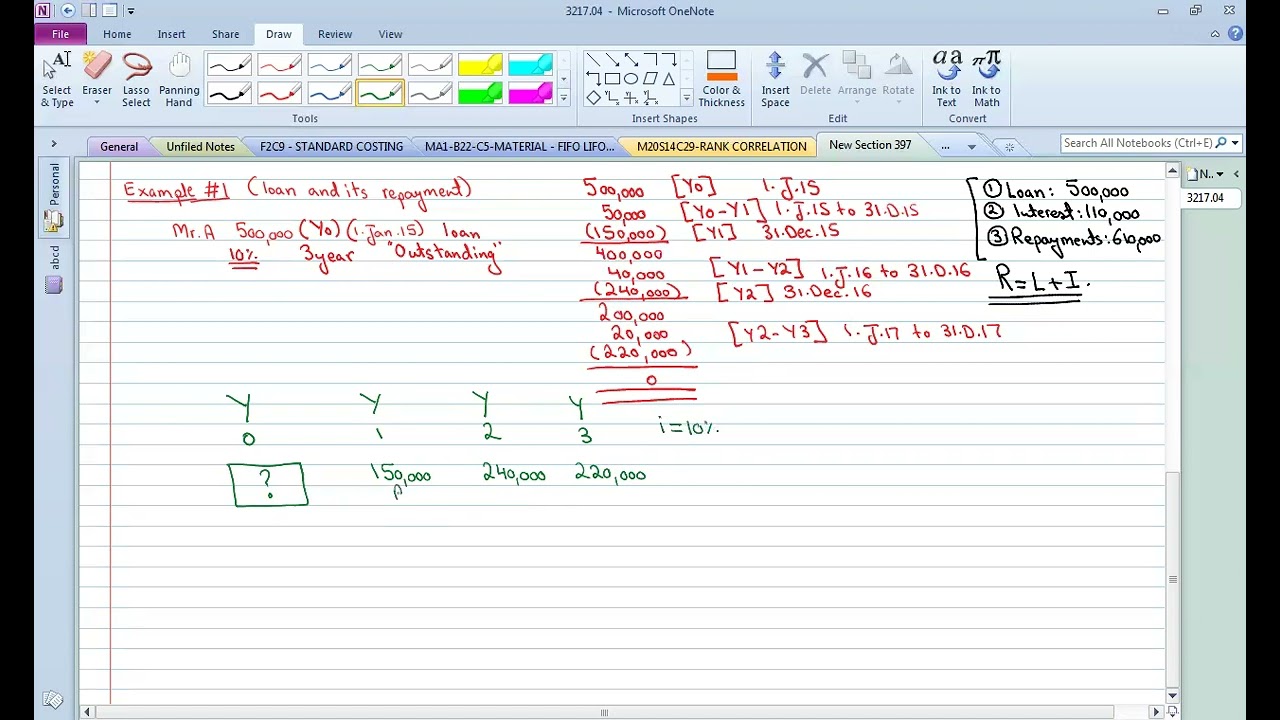 3217.04 - Microsoft OneNote
File Home Insert Share Draw Review View
Select & Type
Eraser
Lasso Select
Panning Hand
Color & Thickness
Insert Space
Delete
Arrange
Rotate
Ink to Text
Ink to Math
Tools
Insert Shapes
Edit
Convert
General Unfiled Notes F2C9 - STANDARD COSTING MA1-B22-C5-MATERIAL - FIFO LIFO... M20S14C29-RANK CORRELATION New Section 397 ... Search All Notebooks (Ctrl+E)
Personal
abcd
N..
3217.04
Example #1 (loan and its repayment)
Mr. A 500,000 (Y0) (1.Jan.15) loan
10% 3year "Outstanding"
500,000 [Y0] 1.J.15
50,000 [Y0-Y1] 1.J.15 to 31.D.15
(150,000) [Y1] 31.Dec.15
400,000
40,000 [Y1-Y2] 1.J.16 to 31.D.16
(240,000) [Y2] 31.Dec.16
200,000
20,000 [Y2-Y3] 1.J.17 to 31.D.17
(220,000)
0
① Loan: 500,000
② Interest: 110,000
③ Repayments: 610,000
R=L+I.
Y Y Y Y
0 1 2 3 i=10%.
? 150,000 240,000 220,000